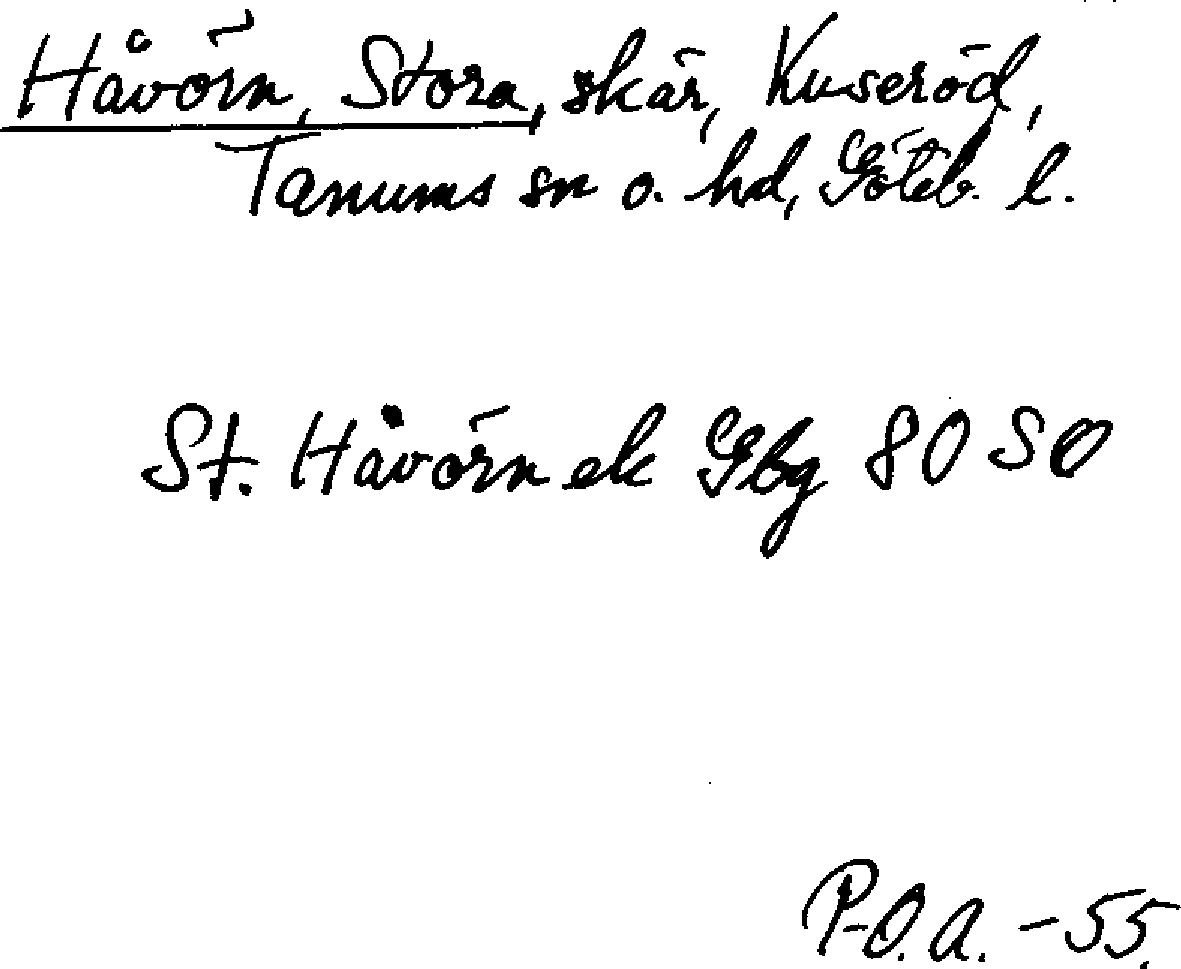 Håvörn, Stora, skär, Kuseröd,
Tanums sn o. hd, Göteb. l.
St. Håvörn ek Gbg 80 SO
P-O.A. -55.